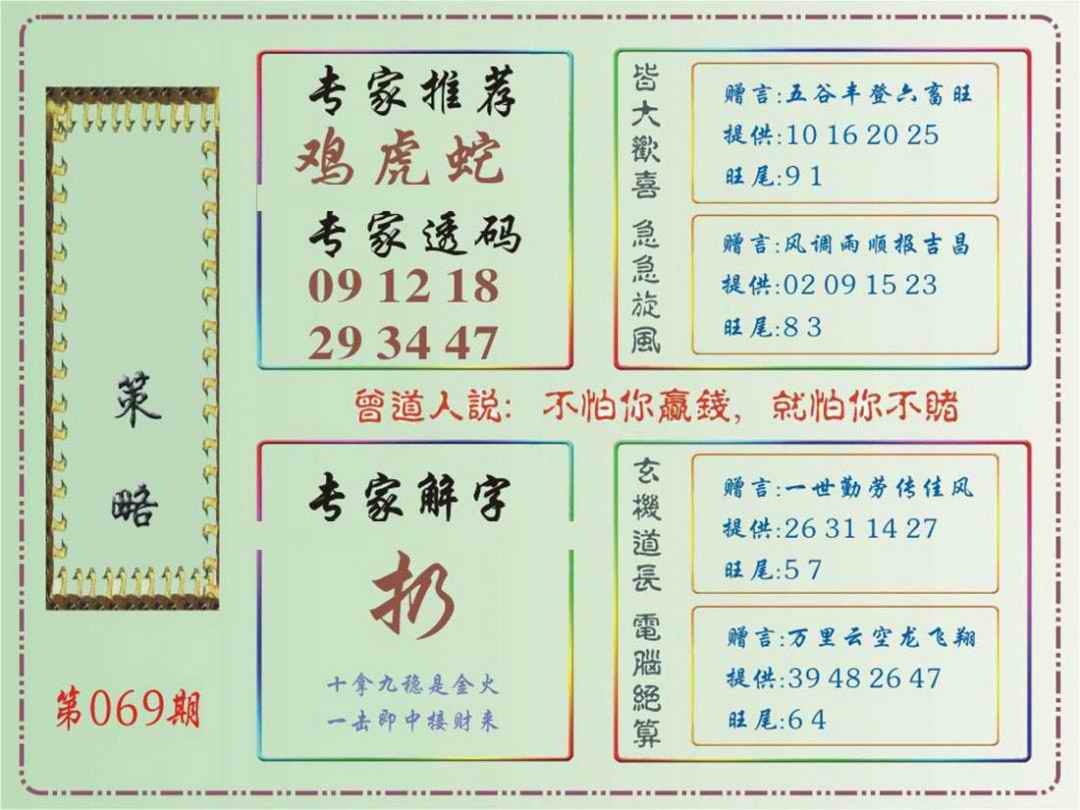 策略
第069期
专家推荐
鸡虎蛇
专家透码
09 12 18
29 34 47
皆大歡喜
赠言:五谷丰登六畜旺
提供:10 16 20 25
旺尾:9 1
急急旋风
赠言:风调雨顺报吉昌
提供:02 09 15 23
旺尾:8 3
曾道人説: 不怕你赢錢, 就怕你不賭
专家解字
扔
十拿九稳是金火
一击即中接财来
玄機道長
赠言:一世勤劳传佳风
提供:26 31 14 27
旺尾:5 7
電腦絕算
赠言:万里云空龙飞翔
提供:39 48 26 47
旺尾:6 4